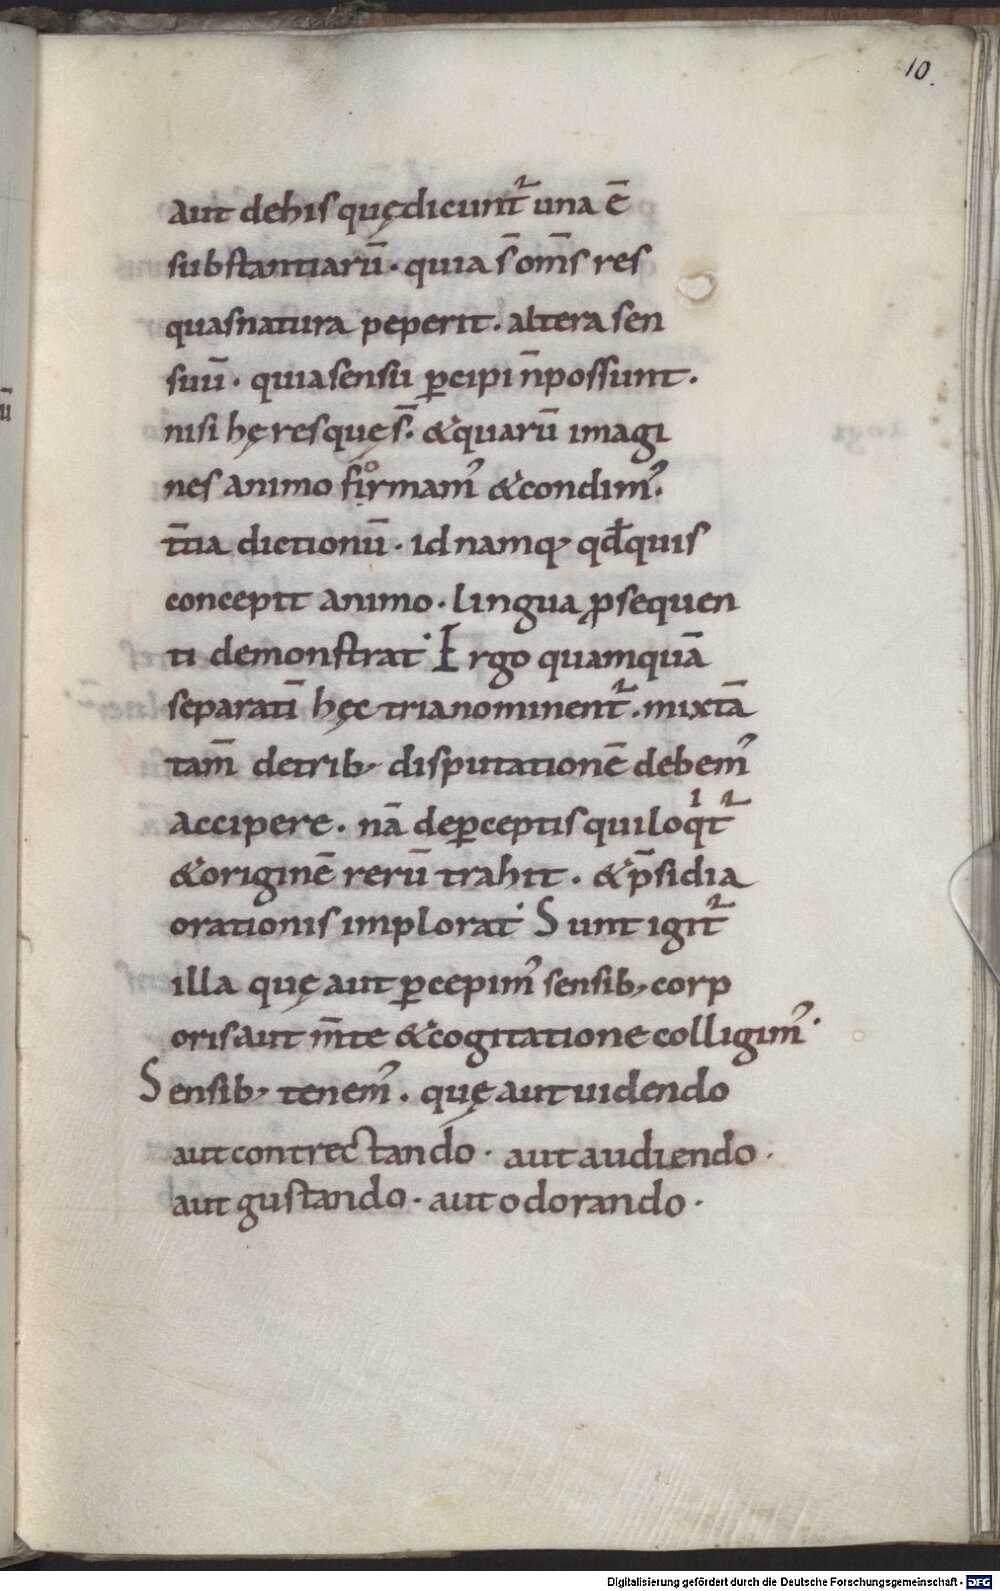 10.
aut dehis quędicunt᷑ una ē
substantiarū · quia s̄ om̄s res
quasnatura peperit . altera sen
suū · quiasensu ꝑcipi n̄possunt .
nisi hę resquę s̄ . &quarū imagi
nes animo firmamꝰ &condimꝰ .
t̄tia dictionū · id namq; qđquis
concepit animo · lingua ꝓsequen
ti demonstrat · Ergo quamquā
separatī hęc trianominent᷑ . mixtā
tam̄ detrib; disputationē debemꝰ
accipere . nā deꝑceptis quiloqͥt᷑
&originē rerū trahit . &p̄sidia
orationis implorat · Sunt igit᷑
illa quę aut ꝑcepimꝰ sensib; corp
orisaut m̄te &cogitatione colligimꝰ ·
Sensib; tenemꝰ . quę aut uidendo
autcontrectando · aut audiendo ·
aut gustando · aut odorando ·
Digitalisierung gefördert durch die Deutsche Forschungsgemeinschaft - DFG